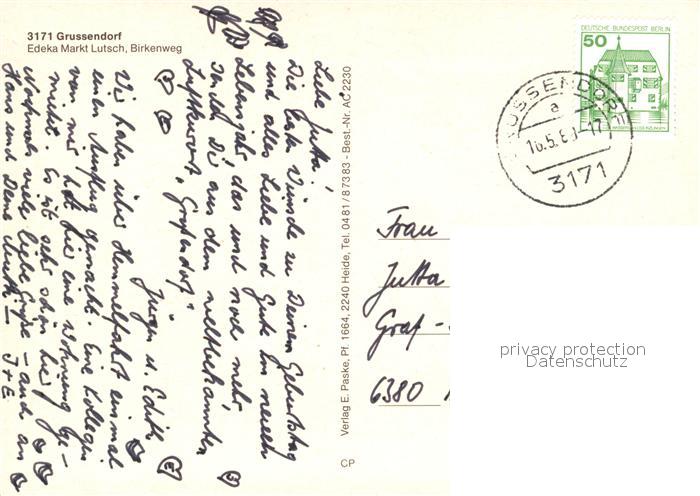 3171 Grussendorf
Edeka Markt Lutsch, Birkenweg
Liebe Jutta!
Die besten Wünsche zu Deinem Geburtstag
und alles Liebe und Gute im neuen
Lebensjahr das und noch mehr
senden Dir aus dem weltbekannten
Luftkurort „Großendorf“
Jürgen u. Edith
Wir haben über Himmelfahrt einmal
einen Ausflug gemacht. Eine Kollegin
von mir hat hier eine Wohnung ge-
mietet. Es ist sehr schön hier
Nochmals viele liebe Grüße – auch an
Hans und Deine J + E
Verlag E. Paske, Pf. 1664, 2240 Heide, Tel. 04 81 / 8 73 83 - Best.-Nr. AC 2230
CP
DEUTSCHE BUNDESPOST BERLIN
50
WASSERSCHLOSS INZLINGEN
GRUSSENDORF
a
3171
Frau
Jutta
Graf-
6380
privacy protection
Datenschutz